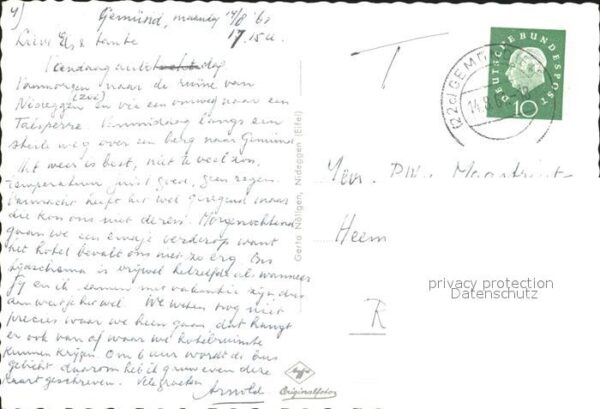 4)
Gemünd, maandag 14/8 '61
17.15 u.
Lieve Els & tante
Vandaag
Vanmorgen naar de ruïne van
Nideggen en via een omweg naar een
Talsperre. Vanmiddag langs een
steile weg over een berg naar Gemünd
Het weer is best, niet te veel zon,
temperatuur juist goed, geen regen.
Vannacht heeft het wel geregend maar
die kon ons niet deren. Morgenochtend
gaan we een eindje verderop want
het hotel bevalt ons niet zo erg. Ons
tijdschema is vrijwel hetzelfde als wanneer
jij en ik samen met vakantie zijn dus
dan weet je het wel. We weten nog niet
precies waar we heen gaan, dat hangt
er ook van af waar we hotelruimte
kunnen krijgen. Om 6 uur wordt de bus
gelicht daarom heb ik gauw even deze
kaart geschreven. Vele groeten
Arnold
Gerta Nöllgen, Nideggen (Eifel)
Agfa
Originalfoto
T
(22c) GEMÜND
14.8.61
DEUTSCHE BUNDESPOST
10
Heem
R
privacy protection
Datenschutz